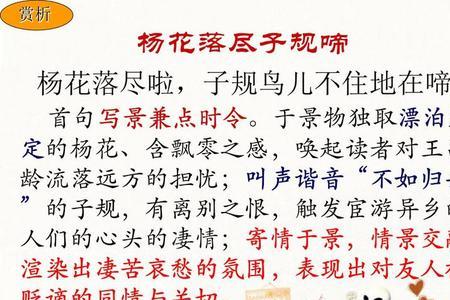 赏析
杨花落尽子规啼
杨花落尽啦，子规鸟儿不住地在啼
首句写景兼点时令。于景物独取漂泊
定的杨花、含飘零之感，唤起读者对王
龄流落远方的担忧；叫声谐音“不如归
”的子规，有离别之恨，触发宦游异乡的
人们的心头的凄情；寄情于景，情景交融
渲染出凄苦哀愁的氛围，表现出对友人
贬谪的同情与关切